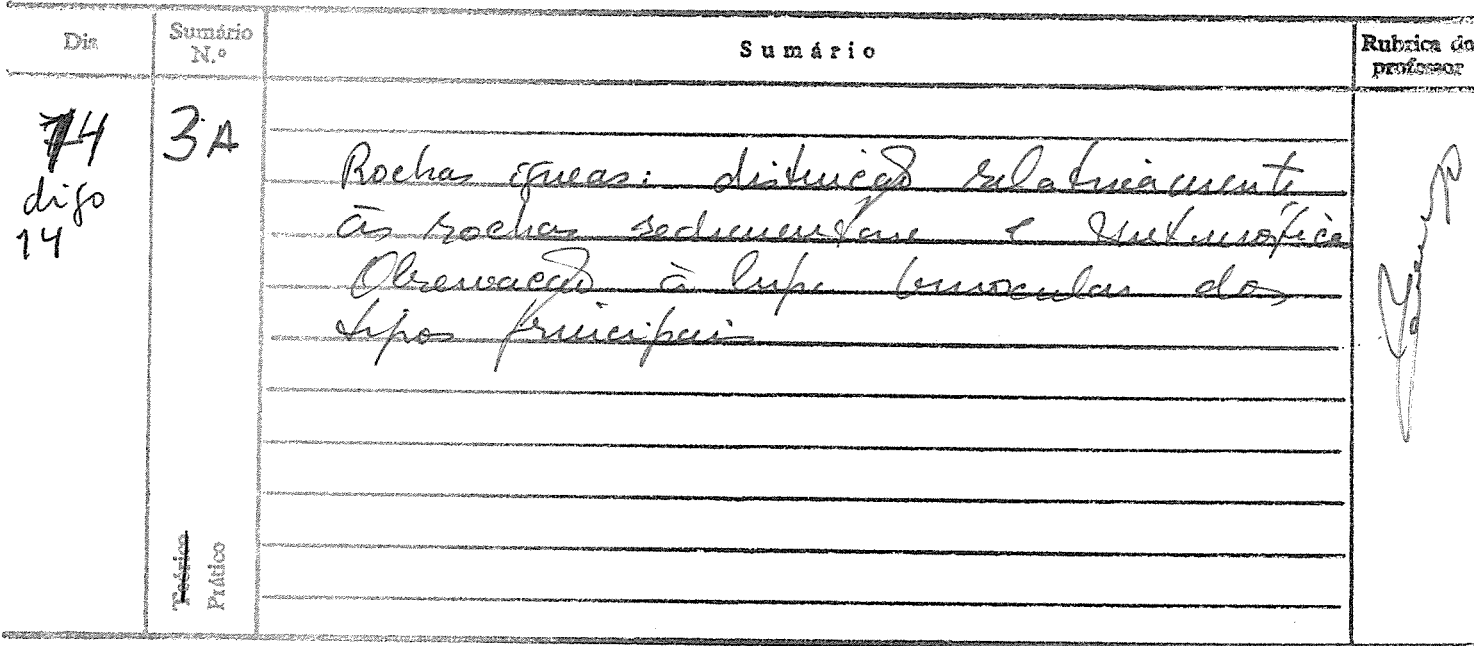 Dia
Sumário N.º
Sumário
Rubrica do professor
14
digo
14
3A
Rochas ígneas: distinção relativamente
às rochas sedimentares e metamórficas
Observação à lupa binocular dos
tipos principais
Teórico
Prático